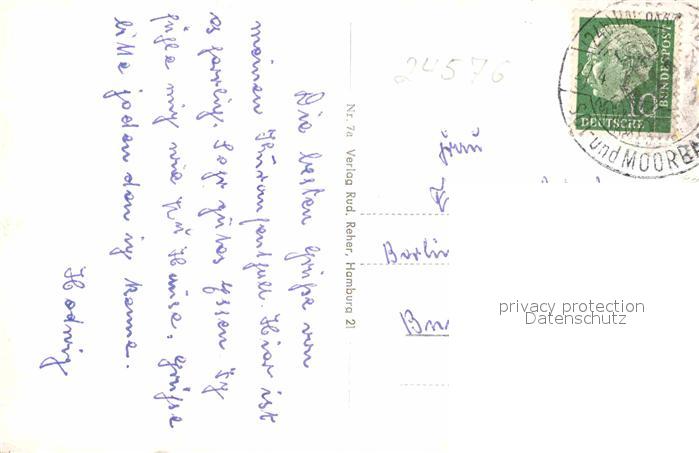 Die besten Grüße von
meinem Kuraufenthalt. Hier ist
es herrlich. Sehr gutes Essen Ich
fühle mich wie zu Hause. Grüße
bitte jeden den ich kenne.
Hedwig
Nr. 7a Verlag Rud. Reher, Hamburg 21
24576
Frau
Berlin
10
DEUTSCHE
BUNDESPOST
und MOORB
privacy protection
Datenschutz